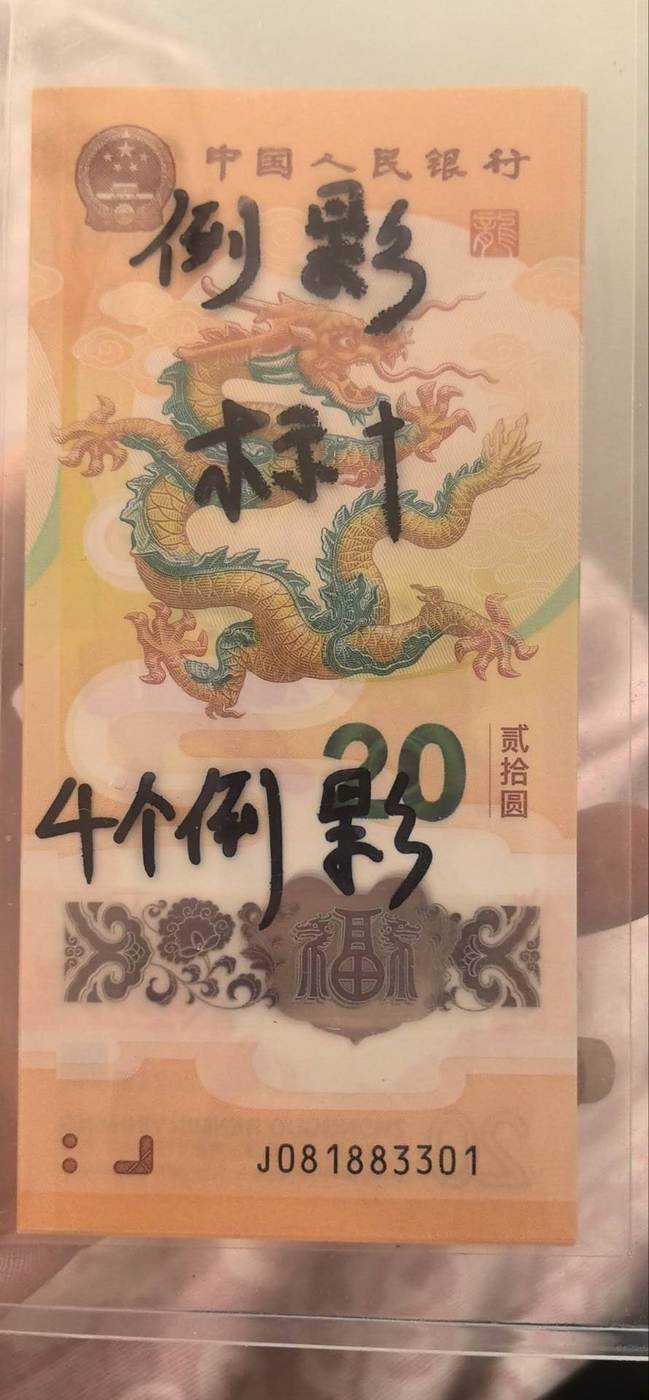 中国人民银行
龍
倒影
标十
20
贰拾圆
4个倒影
福
J081883301